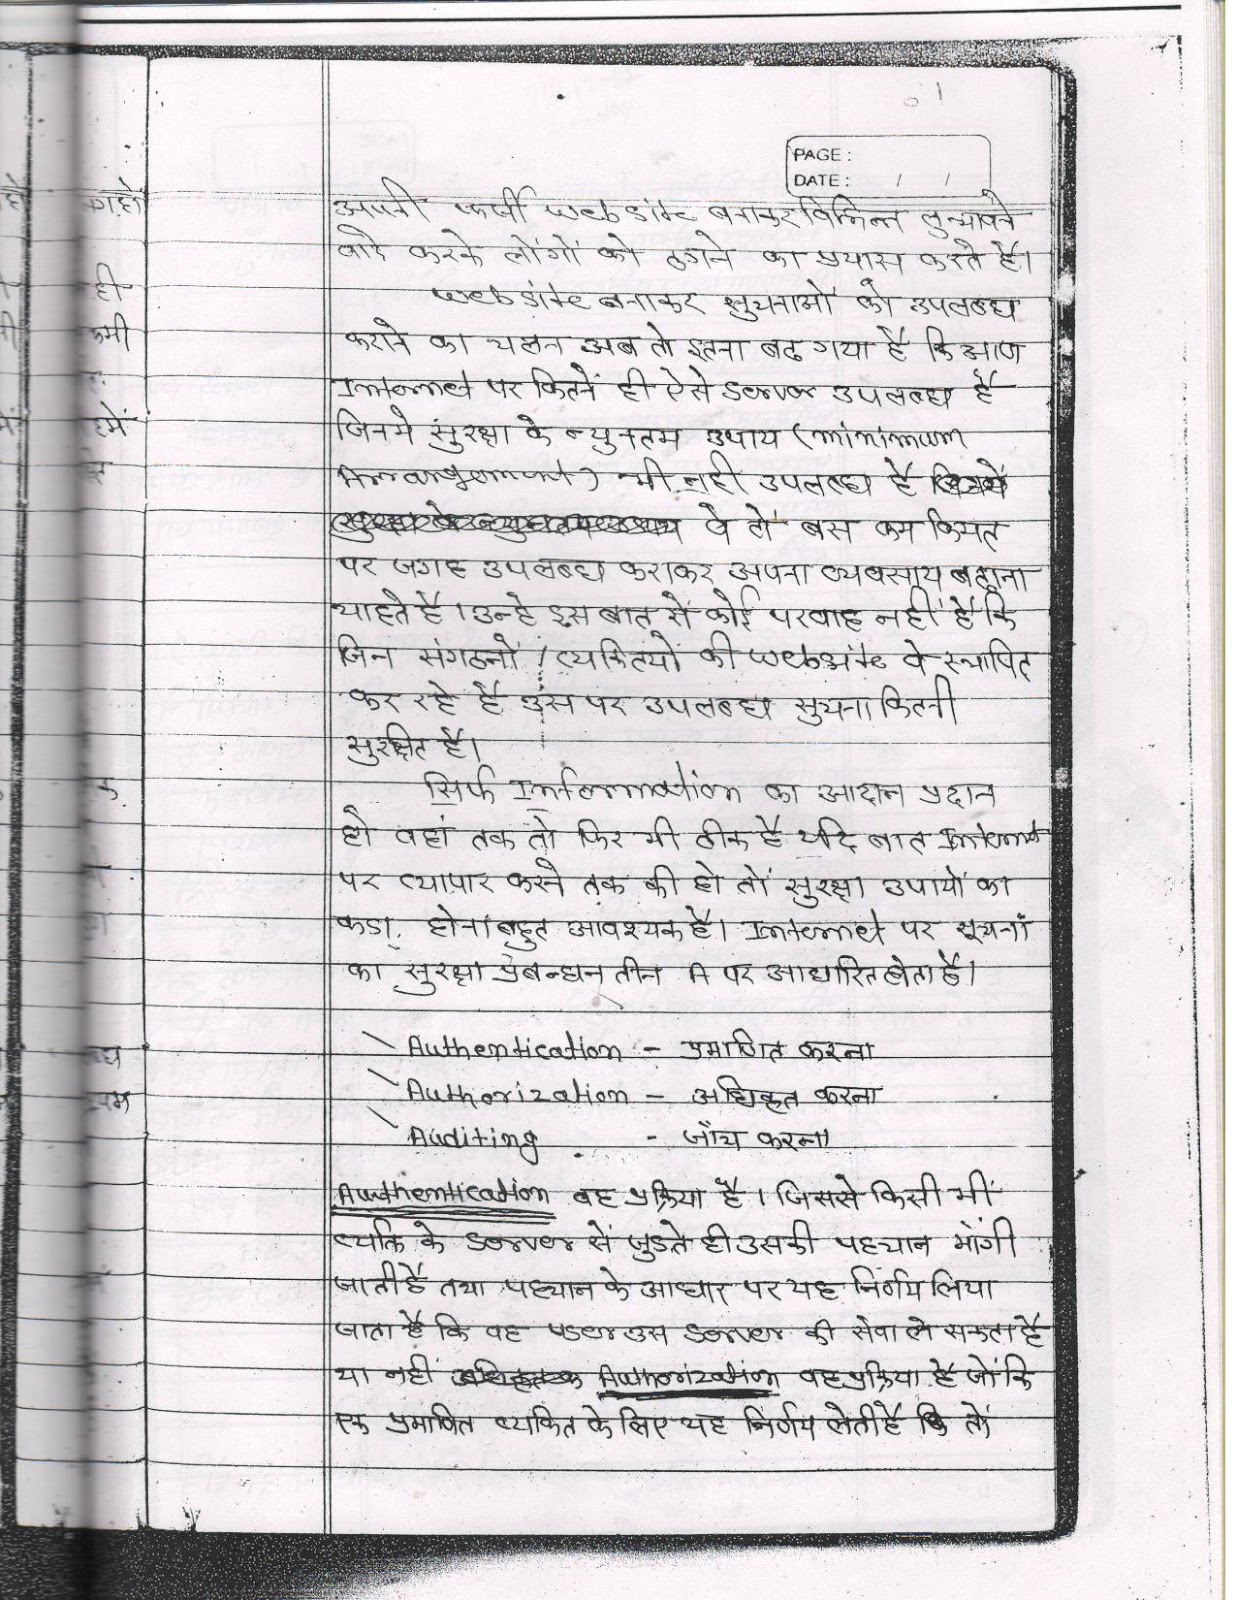 PAGE :
DATE : / /
अपनी फर्जी website बनाकर विभिन्न लुभावने
वादे करके लोंगों को ठगने का प्रयास करते है।
website बनाकर सुचनाओं को उपलब्ध
कराने का चलन अब तो इतना बढ गया है कि आज
Internet पर कितनें ही ऐसे server उपलब्ध है
जिनमे सुरक्षा के न्युनतम उपाय (minimum
Arrangement) भी नही उपलब्ध है
वे तो बस कम किमत
पर जगह उपलब्ध कराकर अपना व्यवसाय बढाना
चाहते है। उन्हे इस बात से कोई परवाह नहीं है कि
जिन संगठनो / व्यक्तियों की website वे स्थापित
कर रहे है उस पर उपलब्ध सुचना कितनी
सुरक्षित है।
सिर्फ Information का आदान प्रदान
हो वहां तक तो फिर भी ठीक है यदि बात Internet
पर व्यापार करने तक की हो तो सुरक्षा उपायो का
कडा होना बहुत आवश्यक है। Internet पर सूचना
का सुरक्षा प्रबन्धन तीन A पर आधारित होता है।
Authentication - प्रमाणित करना
Authorization - अधिकृत करना
Auditing - जाँच करना
Authentication वह प्रक्रिया है। जिससे किसी भी
व्यक्ति के server से जुडते ही उसकी पहचान मांगी
जाती है तथा पहचान के आधार पर यह निर्णय लिया
जाता है कि वह user उस server की सेवा ले सकता है
या नही Authorization वह प्रक्रिया है जो कि
एक प्रमाणित व्यक्ति के लिए यह निर्णय लेती है कि तो